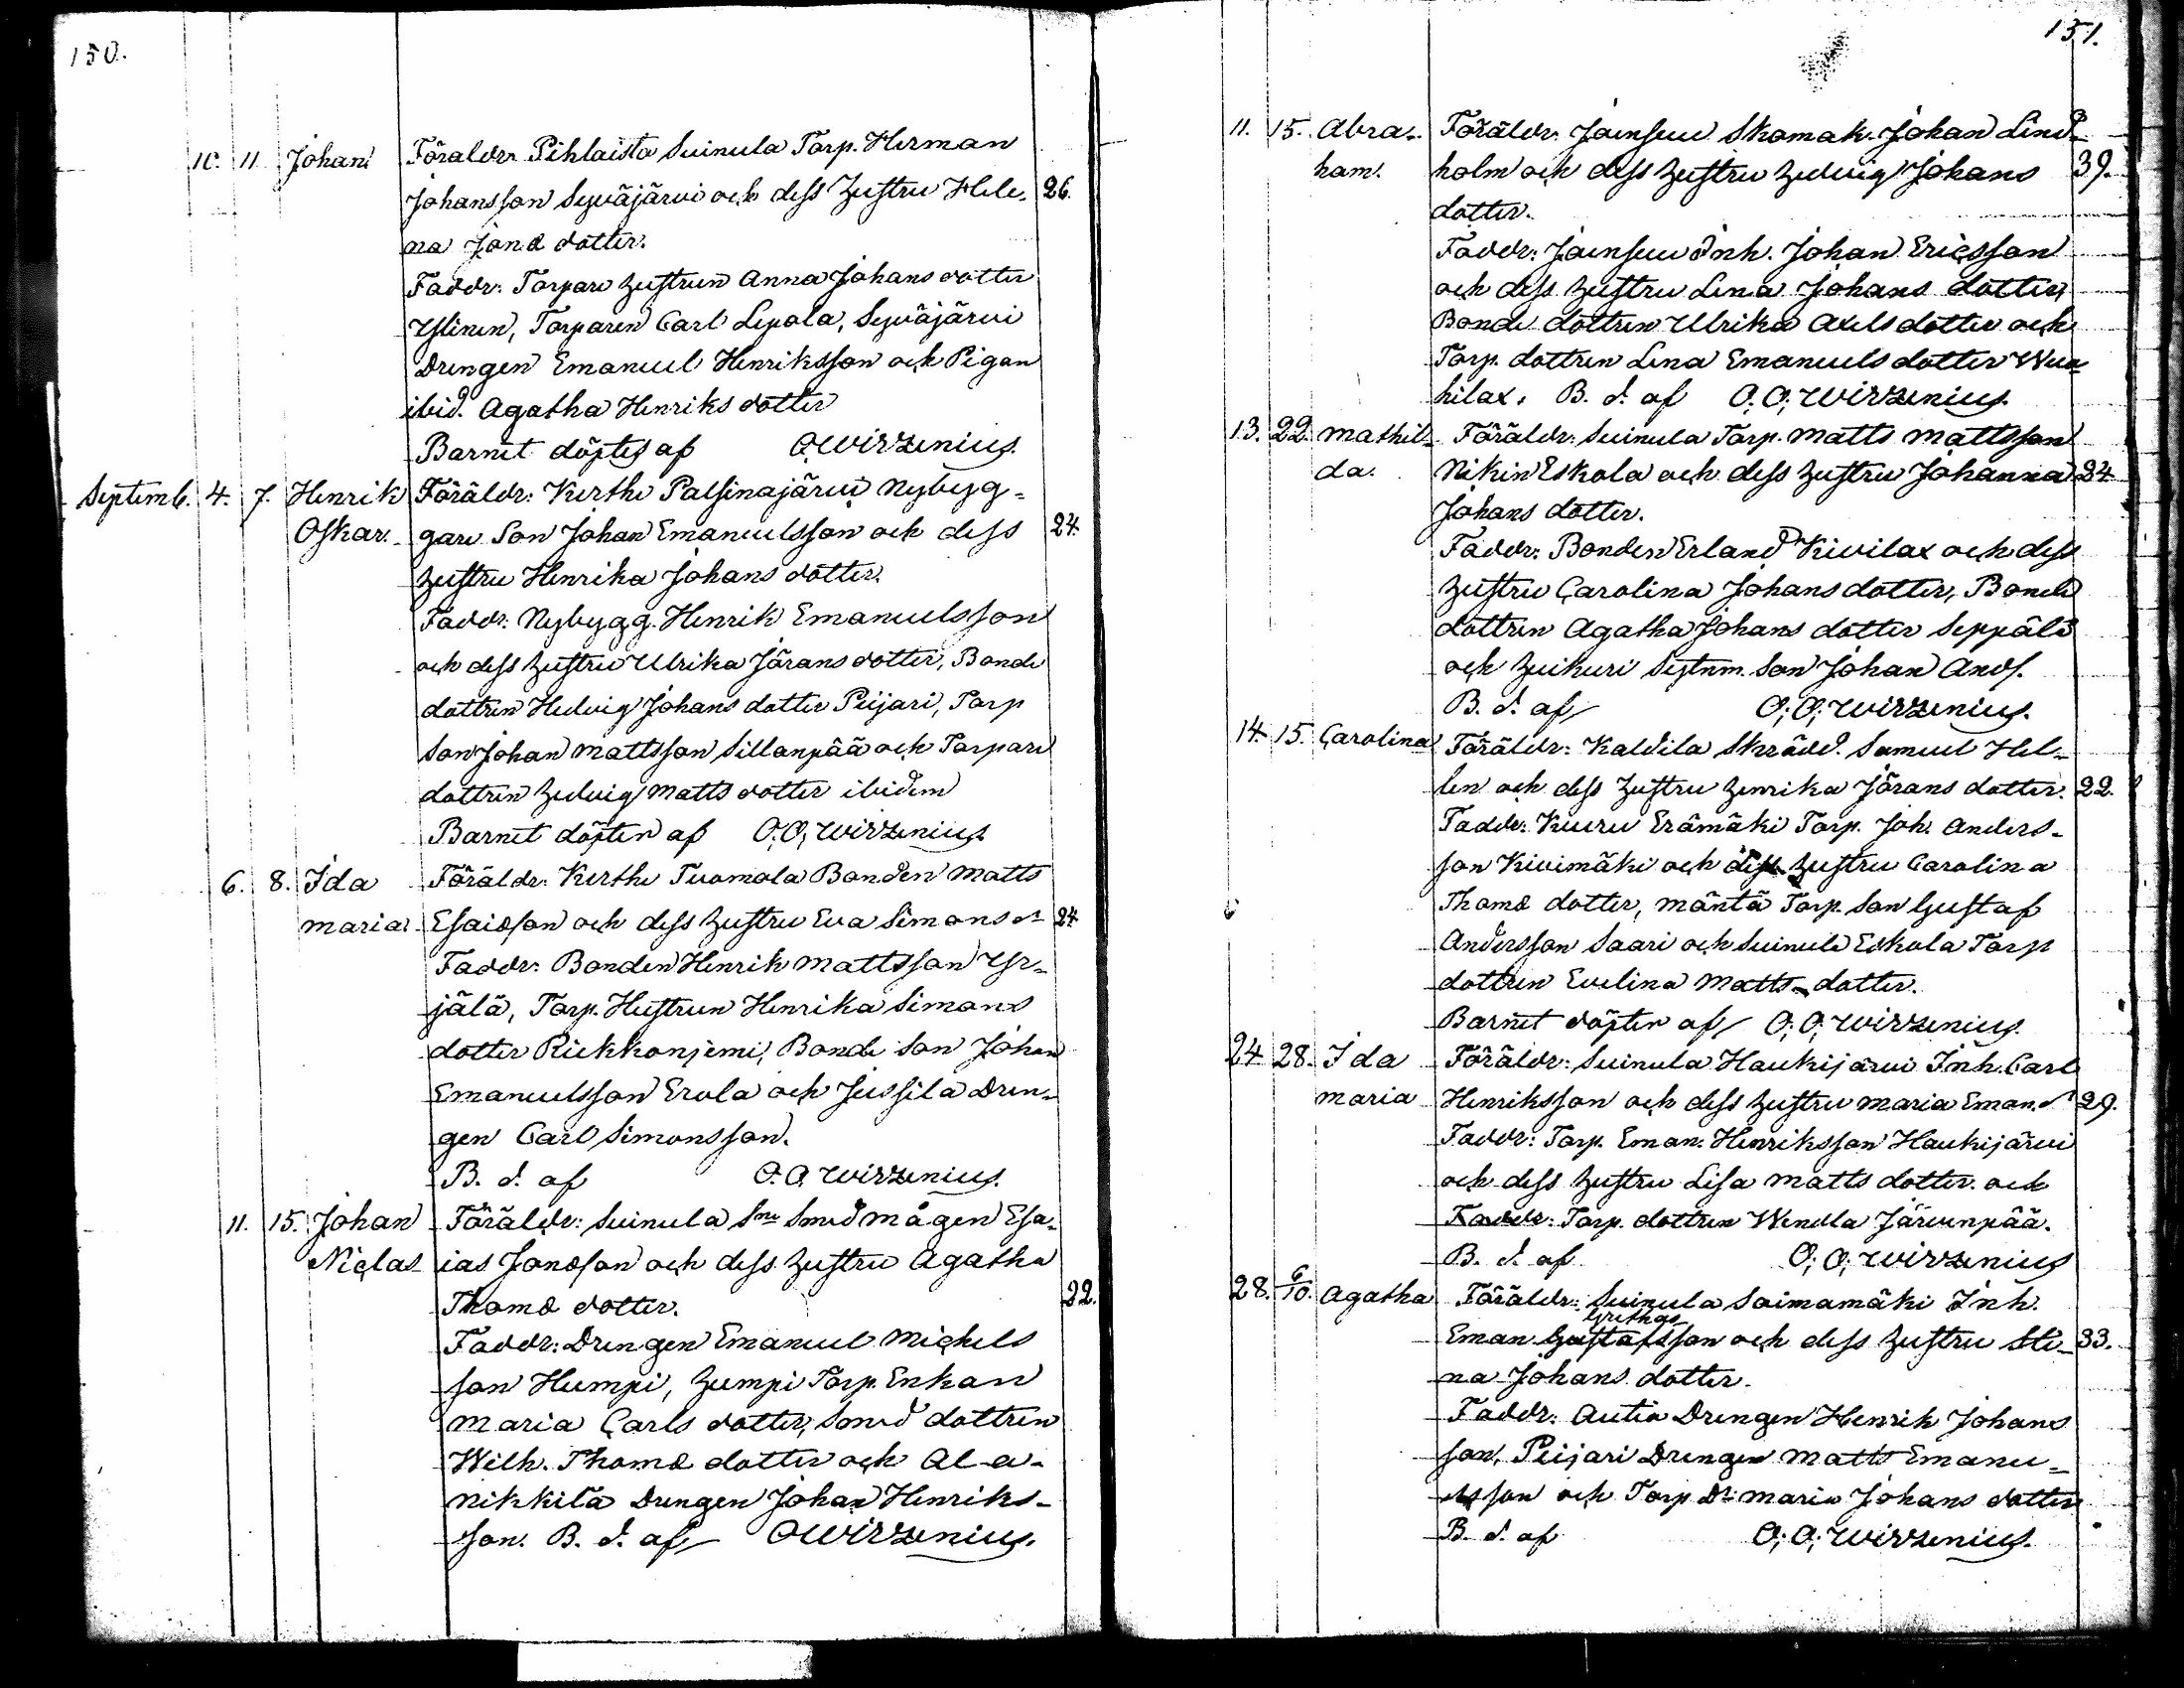 150.
10. 11. Johan Föräldr. Pihlaista Suinula Torp. Herman
Johansson Syväjärvi och dess Hustru Hele- 26.
na Jonæ dotter.
Faddr: Torpare Hustrun Anna Johans dotter
Ylinen, Torparen Carl Lepola, Syväjärvi
Drengen Emanuel Henriksson och Pigan
ibid. Agatha Henriks dotter
Barnet döptes af O. Wirzenius.
Septemb. 4. 7. Henrik Föräldr: Kerthe Palsinajärvi Nybyg-
Oskar. gare Son Johan Emanuelsson och dess 24.
Hustru Henrika Johans dotter.
Faddr: Nybygg. Henrik Emanuelsson
och dess Hustru Ulrika Jörans dotter, Bonde
dottren Hedvig Johans dotter Peijari, Torp
Son Johan Mattsson Sillanpää och Torpare
dottren Hedvig Matts dotter ibidem
Barnet döpten af O. O. Wirzenius
6. 8. Ida Föräldr: Kerthe Tuomola Bonden Matts
Maria Esaiasson och dess Hustru Eva Simons dr 24
Faddr: Bonden Henrik Mattsson Yr-
jälä, Torp. Hustrun Henrika Simons
dotter Riekkonjemi, Bonde Son Johan
Emanuelsson Erola och Jussila Dren-
gen Carl Simonsson.
B. d. af O. O. Wirzenius.
11. 15. Johan Föräldr: Suinula Smed mågen Esa-
Niclas ias Jonæson och dess Hustru Agatha
Thomæ dotter. 22.
Faddr: Drengen Emanuel Michels
son Humpi, Humpi Torp. Enkan
Maria Carls dotter, Smed dottren
Wilh. Thomæ dotter och Al-a-
Nikkilä Drengen Johan Henriks-
son. B. d. af O. Wirzenius.
151.
11. 15. Abra- Föräldr: Jämsen Skomak. Johan Lind-
ham. holm och dess Hustru Hedvig Johans 39.
dotter.
Faddr: Jämsen Inh. Johan Ericsson
och dess Hustru Lena Johans dotter,
Bonde dottren Ulrika Axels dotter och
Torp. dottren Lena Emanuels dotter Wua-
hilax. B. d. af O. O. Wirzenius.
13. 22. Mathil- Föräldr: Suinula Torp. Matts Mattsson
da. Nikin Eskola och dess Hustru Johanna 24.
Johans dotter.
Faddr: Bonden Erland Kivilax och dess
Hustru Carolina Johans dotter, Bonde
dottren Agatha Johans dotter Seppälä
och Huikuri Sextnm. Son Johan Ands.
B. d. af O. O. Wirzenius.
14. 15. Carolina Föräldr: Kaldila Skrädd. Samuel Hel-
len och dess Hustru Henrika Jörans dotter. 22.
Faddr: Kuuru Erämäki Torp. Joh. Anders-
son Kivimäki och dess Hustru Carolina
Thomæ dotter, Mäntä Torp. Son Gustaf
Andersson Saari och Suinula Eskola Torp
dottren Evelina Matts dotter.
Barnet döpten af O. O. Wirzenius.
24 28. Ida Föräldr: Suinula Haukijärvi Inh. Carl
Maria Henriksson och dess Hustru Maria Eman. dr 29.
Faddr: Torp. Eman. Henriksson Haukijärvi
och dess Hustru Lisa Matts dotter. och
Faddr: Torp. dottren Wendla Järvenpää.
B. d. af O. O. Wirzenius
28. 6/10. Agatha Föräldr: Suinula Soimamäki Inh.
Grethas
Eman Gustafsson och dess Hustru Sti- 33.
na Johans dotter.
Faddr: Autio Drengen Henrik Johans
son, Peijari Drengen Matts Emanu-
elsson och Torp. Dr Maria Johans dotter
B. d. af O. O. Wirzenius.